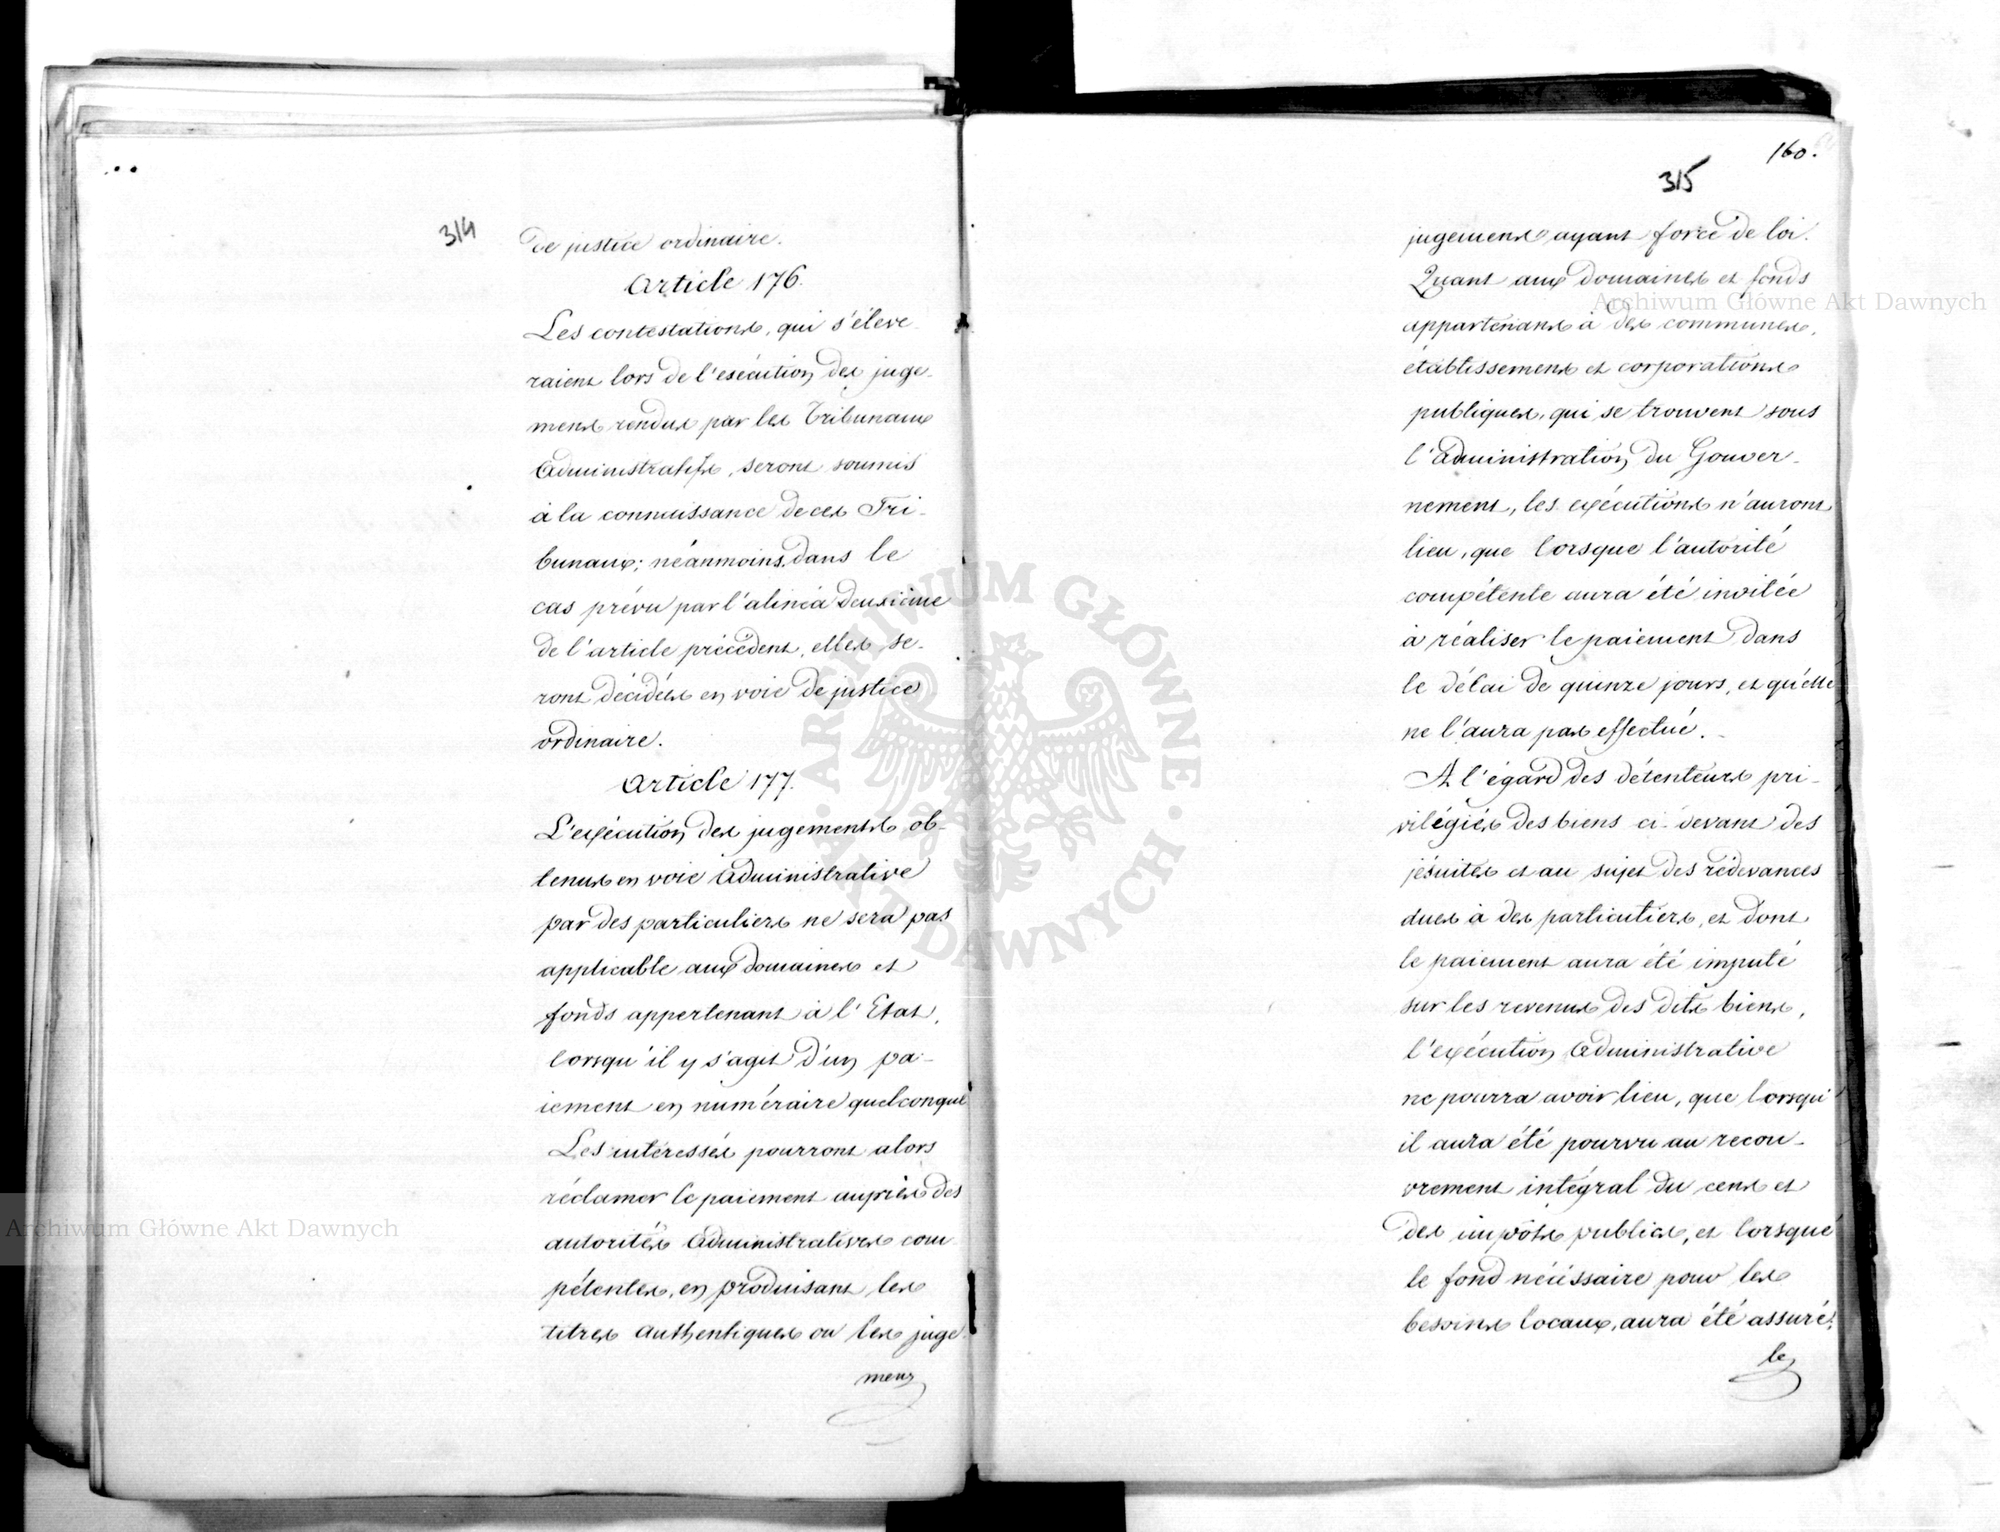 314
de justice ordinaire.
Article 176.
Les contestations, qui s'éleve-
raient lors de l'exécution des juge-
mens rendus par les Tribunaux
Administratifs, seront soumis
à la connaissance de ces Tri-
bunaux; néanmoins, dans le
cas prévu par l'alinéa deuxième
de l'article précédent, elles se-
ront décidées en voie de justice
ordinaire.
Article 177.
L'exécution des jugements ob-
tenus en voie Administrative
par des particuliers ne sera pas
applicable aux domaines et
fonds appertenant à l'Etat,
lorsqu'il y s'agit d'un pa-
iement en numéraire quelconque
Les intéressés pourront alors
réclamer le paiement auprès des
autorités Administratives com-
pétentes, en produisant les
titres authentiques ou les juge-
mens
160.
315
jugemens ayant force de loi.
Quant aux domaines et fonds
appartenans à des communes,
établissemens et corporations
publiques, qui se trouvent sous
l'Administration du Gouver-
nement, les exécutions n'auront
lieu, que lorsque l'autorité
compétente aura été invitée
à réaliser le paiement dans
le délai de quinze jours, et qu'elle
ne l'aura pas effectué.
A l'égard des détenteurs pri-
vilégiés des biens ci-devant des
jésuites et au sujet des rédevances
dues à des particutiers, et dont
le paiement aura été imputé
sur les revenus des dits biens,
l'exécution Administrative
ne pourra avoir lieu, que lorsqu'
il aura été pourvu au recou-
vrement intégral du cens et
des impôts publics, et lorsque
le fond nécissaire pour les
besoins locaux, aura été assuré,
le
Archiwum Główne Akt Dawnych
Archiwum Główne Akt Dawnych
ARCHIWUM GŁÓWNE · AKT DAWNYCH ·